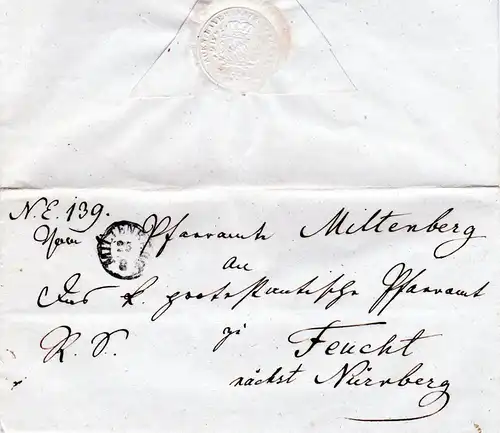 N. E. 139.
Vom Pfarramte Miltenberg
An
Das k. protestantische Pfarramt
zu
R. S. Feucht
nächst Nürnberg